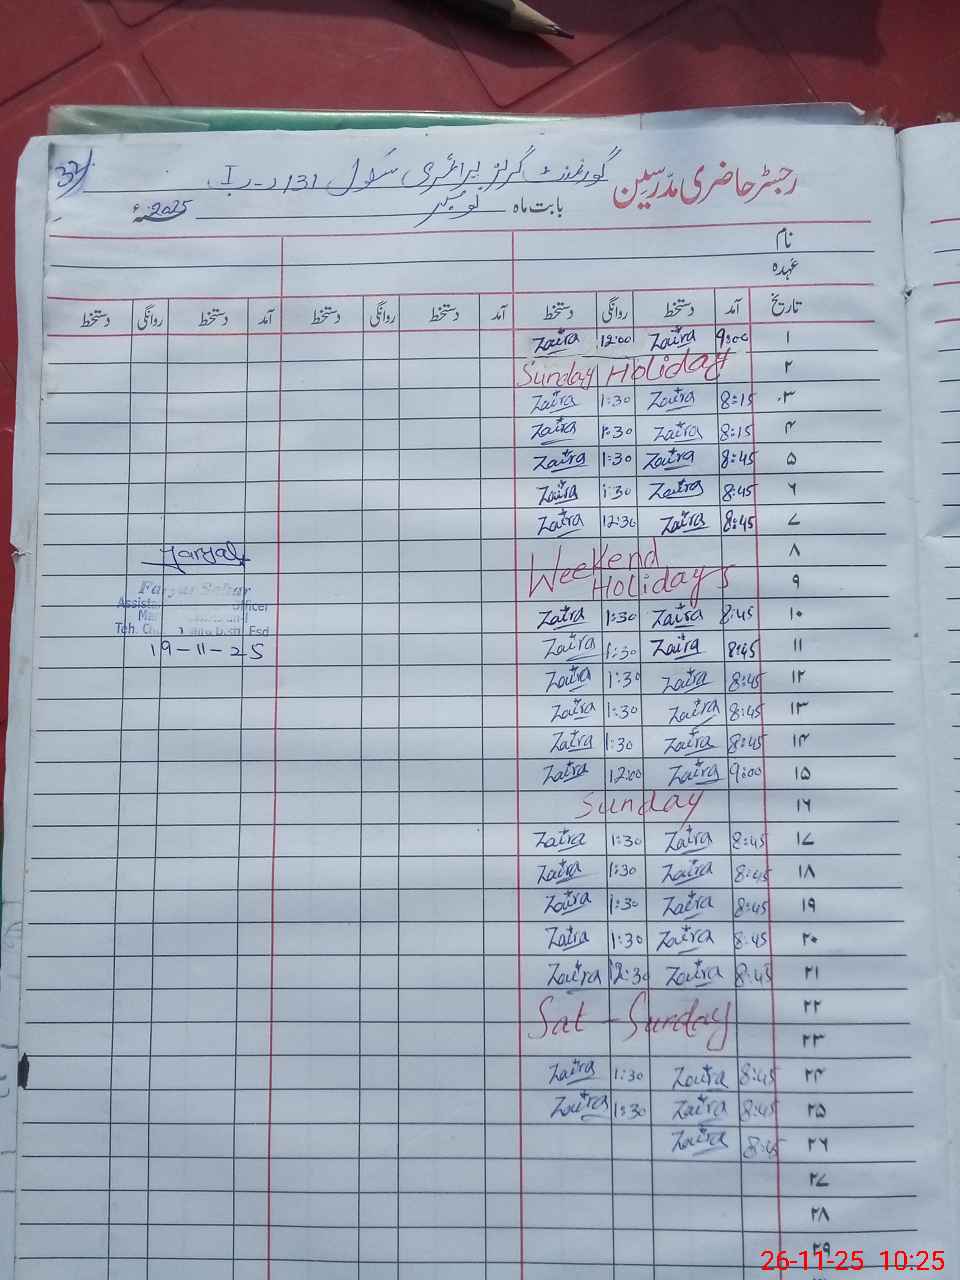 رجسٹر حاضری مدرسین گورنمنٹ گرلز پرائمری سکول 131 ر-ب I
بابت ماہ نومبر 2025ء
نام
عہدہ
تاریخ آمد دستخط روانگی دستخط آمد دستخط روانگی دستخط آمد دستخط روانگی دستخط
۱ 9:00 Zaira 12:00 Zaira
۲ Sunday Holiday
۳ 8:15 Zaira 1:30 Zaira
۴ 8:15 Zaira 1:30 Zaira
۵ 8:45 Zaira 1:30 Zaira
۶ 8:45 Zaira 1:30 Zaira
۷ 8:45 Zaira 12:30 Zaira
۸ Weekend
۹ Holidays
۱۰ 8:45 Zaira 1:30 Zaira
۱۱ 8:45 Zaira 1:30 Zaira
۱۲ 8:45 Zaira 1:30 Zaira
۱۳ 8:45 Zaira 1:30 Zaira
۱۴ 8:45 Zaira 1:30 Zaira
۱۵ 9:00 Zaira 12:00 Zaira
۱۶ Sunday
۱۷ 8:45 Zaira 1:30 Zaira
۱۸ 8:45 Zaira 1:30 Zaira
۱۹ 8:45 Zaira 1:30 Zaira
۲۰ 8:45 Zaira 1:30 Zaira
۲۱ 8:45 Zaira 12:30 Zaira
۲۲ Sat - Sunday
۲۳
۲۴ 8:45 Zaira 1:30 Zaira
۲۵ 8:45 Zaira 1:30 Zaira
۲۶ 8:45 Zaira
۲۷
۲۸
۲۹
Officer
Teh.
Fsd
19-11-25
26-11-25 10:25